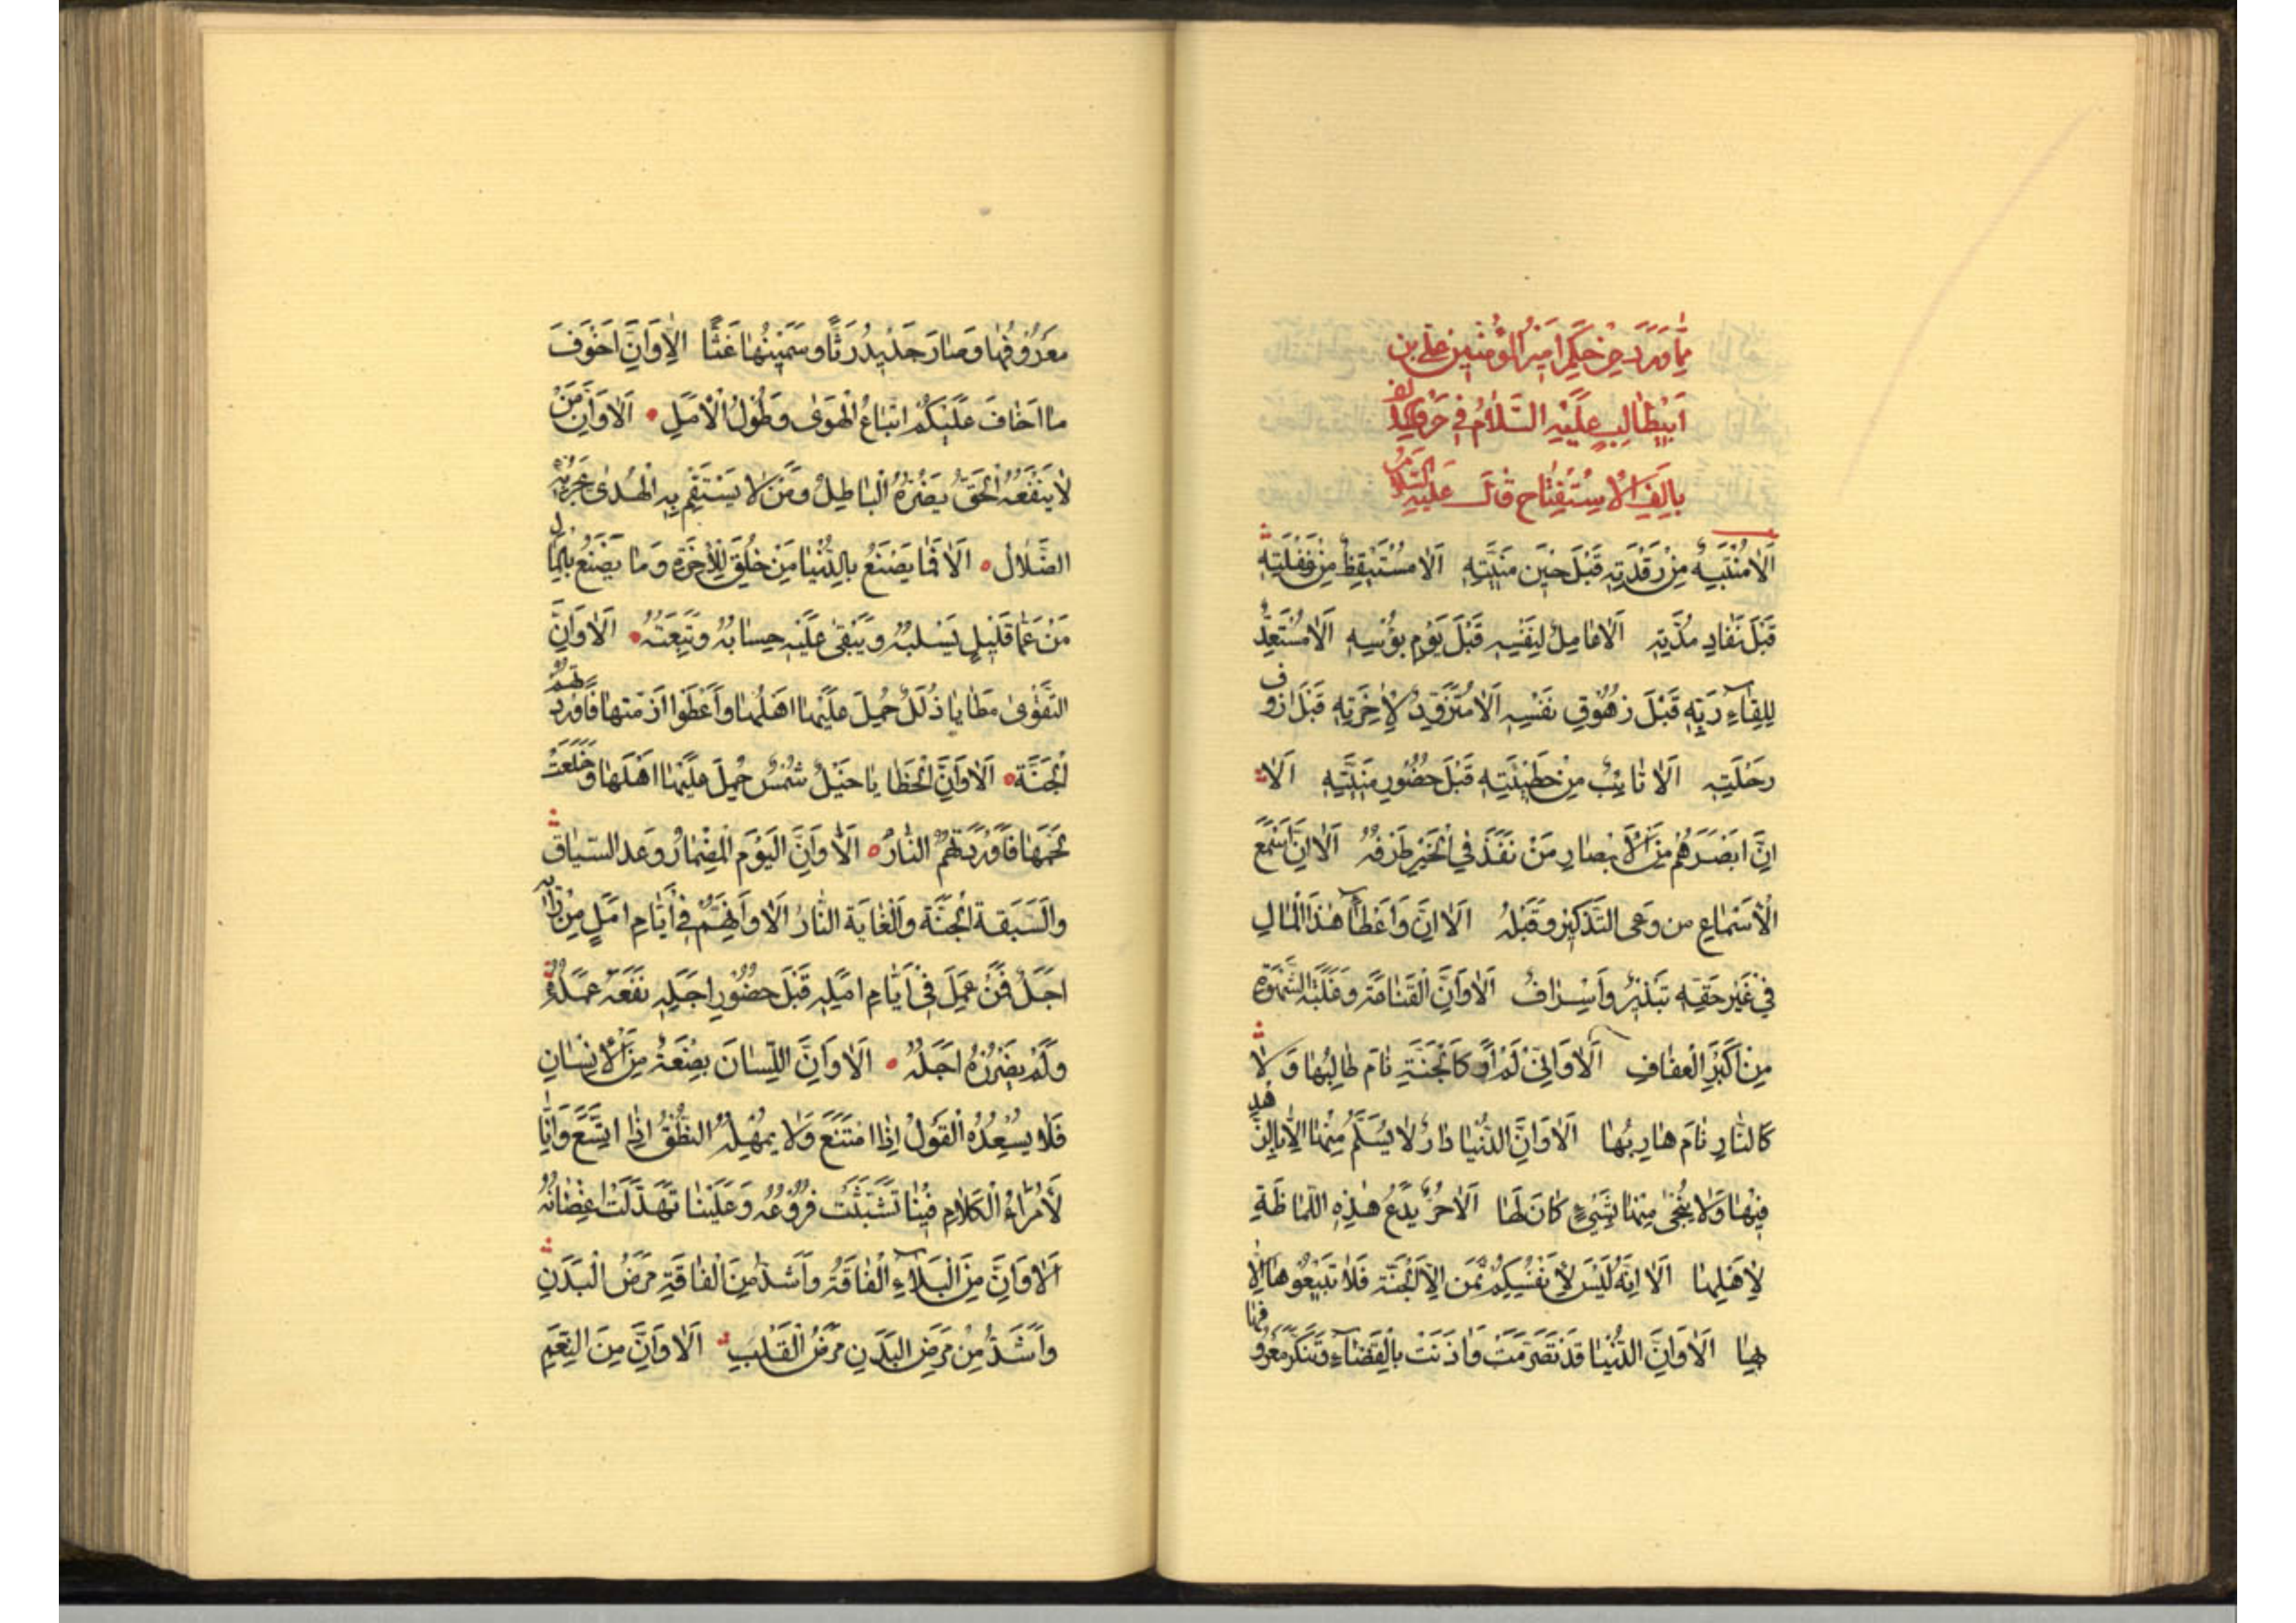 مِمَّا وَرَدَ مِنْ حِكَمِ اَمِيرِ الْمُؤْمِنِينَ عَلِيِّ بْنِ
اَبِيطَالِبٍ عَلَيْهِ السَّلَامُ فِي حَرْفِ الْاَلِفِ
بِاَلِفِ الْاِسْتِفْتَاحِ قَالَ عَلَيْهِ السَّلَامُ
اَلَا مُنْتَبِهٌ مِنْ رَقْدَتِهِ قَبْلَ حِينِ مَنِيَّتِهِ اَلَا مُسْتَيْقِظٌ مِنْ غَفْلَتِهِ
قَبْلَ نَفَادِ مُدَّتِهِ اَلَا عَامِلٌ لِنَفْسِهِ قَبْلَ يَوْمِ بُؤْسِهِ اَلَا مُسْتَعِدٌّ
لِلِقَاءِ رَبِّهِ قَبْلَ زُهُوقِ نَفْسِهِ اَلَا مُتَزَوِّدٌ لِاٰخِرَتِهِ قَبْلَ اَزُوفِ
رِحْلَتِهِ اَلَا تَائِبٌ مِنْ خَطِيئَتِهِ قَبْلَ حُضُورِ مَنِيَّتِهِ اَلَا
اِنَّ اَبْصَرَهُمْ مِنَ الْاَبْصَارِ مَنْ نَفَذَ فِي الْخَيْرِ طَرْفُهُ اَلَا اِنَّ اَسْمَعَ
الْاَسْمَاعِ مَن وَعَى التَّذْكِيرَ وَقَبِلَهُ اَلَا اِنَّ وَاَعْطَاءَ هٰذَا الْمَالِ
فِي غَيْرِ حَقِّهِ تَبْذِيرٌ وَاَسْرَافٌ اَلَا وَاَنَّ الْقَنَاعَةَ وَغَلَبَةَ الشَّهْوَةِ
مِنْ اَكْبَرِ الْعَفَافِ اَلَا وَاِنِّي لَمْ اَرَ كَالْجَنَّةِ نَامَ طَالِبُهَا وَلَا
كَالنَّارِ نَامَ هَارِبُهَا اَلَا وَاَنَّ الدُّنْيَا دَارٌ لَا يُسْلَمُ مِنْهَا اِلَّا بِالزُّهْدِ
فِيْهَا وَلَا يُنْجٰى مِنْهَا بِشَيْءٍ كَانَ لَهَا اَلَا حُرٌّ يَدَعُ هٰذِهِ اللُّمَاظَةَ
لِاَهْلِهَا اَلَا اِنَّهُ لَيْسَ لِاَنْفُسِكُمْ ثَمَنٌ اِلَّا الْجَنَّةَ فَلَا تَبِيْعُوهَا اِلَّا
بِهَا اَلَا وَاَنَّ الدُّنْيَا قَدْ تَصَرَّمَتْ وَاٰذَنَتْ بِالْقَضَاءِ وَتَنَكَّرَ مَعْرُوفُهَا
مَعْرُوفُهَا وَصَارَ جَدِيدُ رَثًّا وَسَمِيْنُهَا غَثًّا اَلَا وَاَنَّ اَخْوَفَ
مَا اَخَافَ عَلَيْكُمْ اتِّبَاعُ الْهَوٰى وَطُوْلُ الْاَمَلِ اَلَا وَاَنَّ مَنْ
لَا يَنْفَعُهُ الْحَقُّ يَضُرُّهُ الْبَاطِلُ وَمَنْ لَا يَسْتَقِمْ بِهِ الْهُدٰى
الضَّلَالُ اَلَا فَمَا يَصْنَعُ بِالدُّنْيَا مَنْ خُلِقَ لِلْاٰخِرَةِ وَمَا يَصْنَعُ بِالْمَالِ
مَنْ عَمَّا قَلِيْلٍ يَسْلُبُهُ وَيَبْقٰى عَلَيْهِ حِسَابُهُ وَتَبِعَتُهُ اَلَا وَاَنَّ
التَّقْوٰى مَطَايَا ذُلُلٌ حُمِلَ عَلَيْهَا اَهْلُهَا وَاَعْطَوْا اَزِمَّتَهَا فَاَوْرَدَتْهُمُ
الْجَنَّةَ اَلَا وَاَنَّ الْخَطَايَا خَيْلٌ شُمْسٌ حُمِلَ عَلَيْهَا اَهْلُهَا وَخُلِعَتْ
لُجُمُهَا فَاَوْرَدَتْهُمُ النَّارَ اَلَا وَاَنَّ الْيَوْمَ الْمِضْمَارُ وَغَدَ السِّيَاقَ
وَالسَّبَقَةَ الْجَنَّةَ وَالْغَايَةَ النَّارُ اَلَا وَاَنَّكُمْ فِي اَيَّامِ اَمَلٍ مِنْ وَرَائِهِ
اَجَلٌ فَمَنْ عَمِلَ فِي اَيَّامِ اَمَلِهِ قَبْلَ حُضُورِ اَجَلِهِ نَفَعَهُ عَمَلُهُ
وَلَمْ يَضْرُرْهُ اَجَلُهُ اَلَا وَاَنَّ اللِّسَانَ بَضْعَةٌ مِنَ الْاِنْسَانِ
فَلَا يُسْعِدُهُ الْقَوْلُ اِذَا امْتَنَعَ وَلَا يُمْهِلُهُ النُّطْقُ اِذَا اتَّسَعَ وَاِنَّا
لَاُمَرَاءُ الْكَلَامِ فِيْنَا تَشَبَّثَتْ فُرُوعُهُ وَعَلَيْنَا تَهَدَّلَتْ اَغْصَانُهُ
اَلَا وَاَنَّ مِنَ الْبَلَاءِ الْفَاقَةُ وَاَشَدُّ مِنَ الْفَاقَةِ مَرَضُ الْبَدَنِ
وَاَشَدُّ مِنْ مَرَضِ الْبَدَنِ مَرَضُ الْقَلْبِ اَلَا وَاَنَّ مِنَ النِّعَمِ